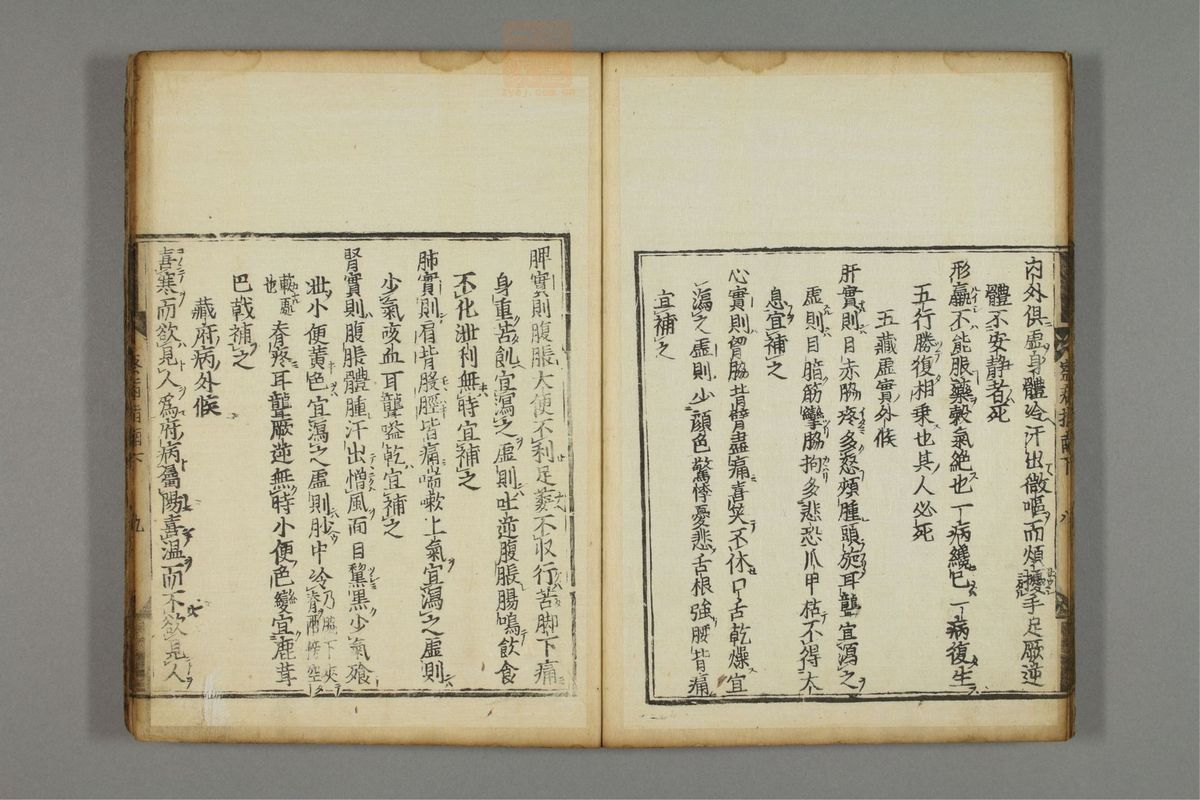 内外俱虚身體冷汗出微嘔而煩擾手足厥逆
體不安静者死
形羸不能服藥穀氣絶也一病纔已一病復生
五行勝復相乗也其人必死
五藏虚實外候
肝實則目赤脇疼多怒頰腫頭旋耳聾宜瀉之
虚則目暗筋攣脇拘多悲恐爪甲枯不得太
息宜補之
心實則胷脇背臂盡痛喜笑不休口舌乾燥宜
瀉之虚則少顔色驚悸憂悲舌根強腰背痛
宜補之
脾實則腹脹大便不利足萎不収行苦脚下痛
身重苦飢宜瀉之虚則吐逆腹脹腸鳴飲食
不化泄利無時宜補之
肺實則肩背股脛皆痛喘嗽上氣宜瀉之虚則
少氣咳血耳聾嗌乾宜補之
腎實則腹脹體腫汗出憎風面目黧黒少氣飱
泄小便黄色宜瀉之虚則䏚中冷乃脇下夾脊両傍空
軟處也脊疼耳聾厥逆無時小便色變宜鹿茸
巴戟補之
藏府病外候
喜寒而欲見人爲府病屬陽喜温而不欲見人